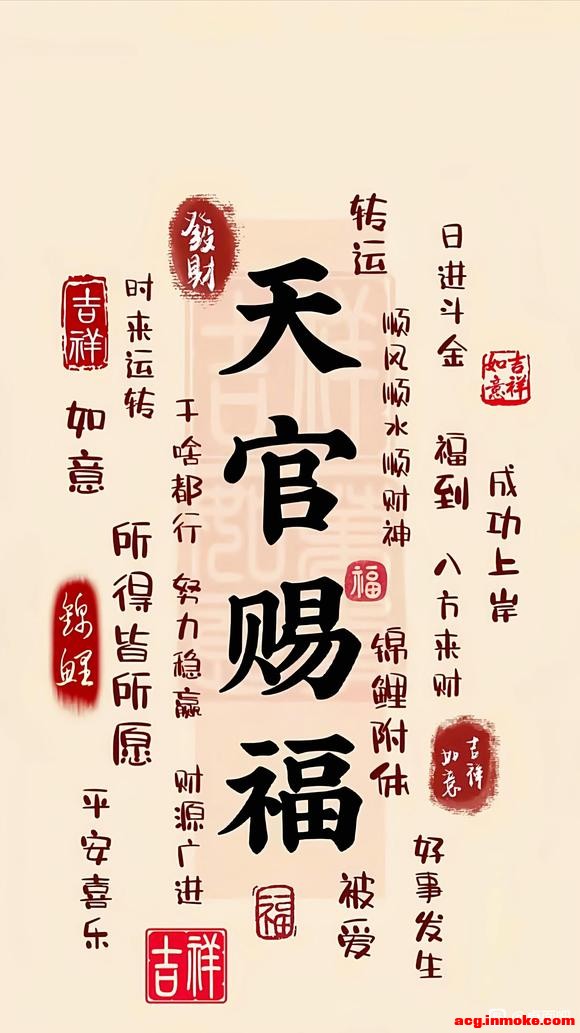 天官赐福
發財
转运
日进斗金
吉祥
时来运转
顺风顺水顺财神
吉祥如意
如意
干啥都行
福到
成功上岸
所得皆所愿
努力稳赢
福
八方来财
锦鲤
锦鲤附体
吉祥如意
平安喜乐
财源广进
福
被爱
好事发生
吉祥
acg.inmoke.com